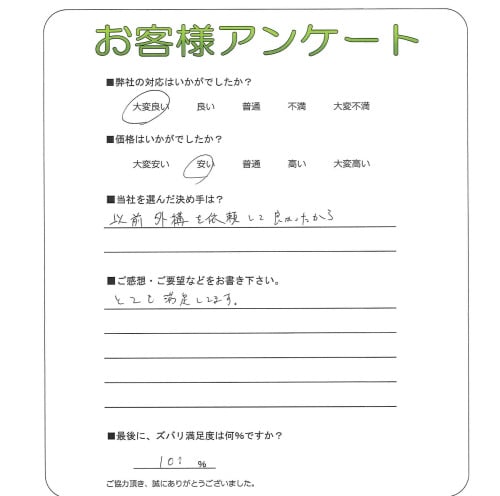 お客様アンケート
■弊社の対応はいかがでしたか？
大変良い 良い 普通 不満 大変不満
■価格はいかがでしたか？
大変安い 安い 普通 高い 大変高い
■当社を選んだ決め手は？
以前外構を依頼して良かったから
■ご感想・ご要望などをお書き下さい。
とても満足してます。
■最後に、ズバリ満足度は何%ですか？
100 %
ご協力頂き、誠にありがとうございました。